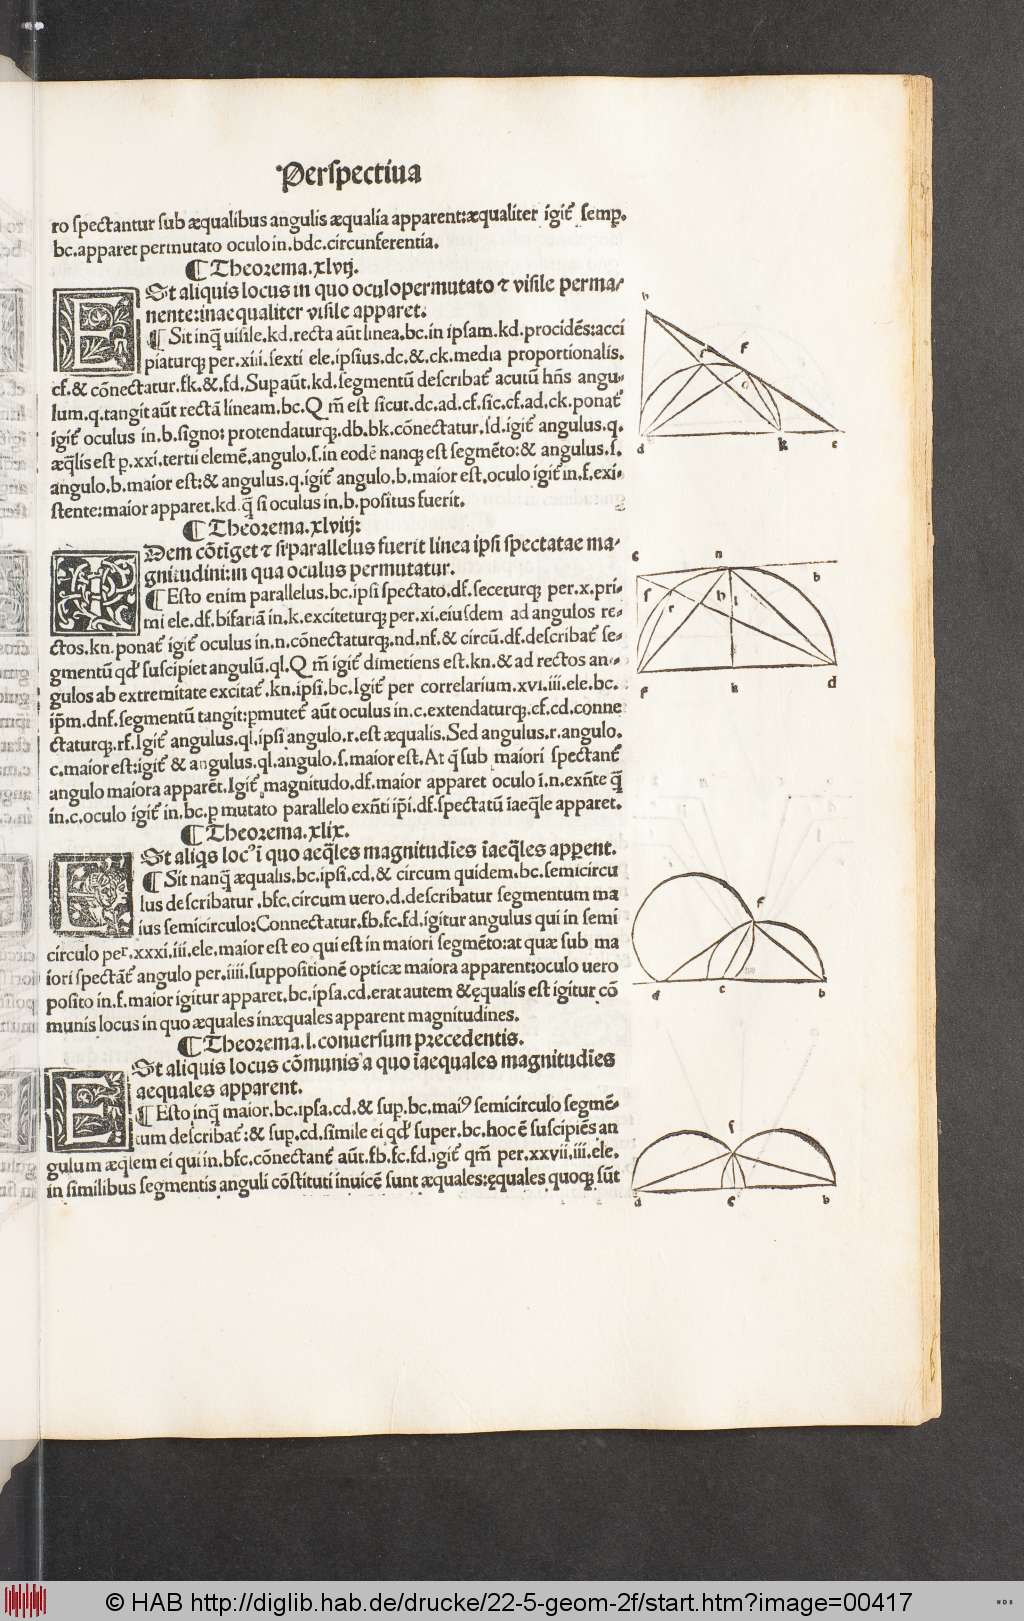 Perspectiua
ro spectantur sub æqualibus angulis æqualia apparent:æqualiter igit̃ semp̱.
bc.apparet permutato oculo in.bdc.circunferentia.
¶ Theorema.xlvij.
ESt aliquis locus in quo oculo permutato ⁊ visile perma-
nente:inaequaliter visile apparet.
¶ Sit inq̃ uisile.kd.recta aũt linea.bc.in ipsam.kd.procidẽs:acci
piaturqꝫ per.xiii.sexti ele.ipsius.dc.&.ck.media proportionalis.
cf.& cõnectatur.fk.&.fd.Sup aũt.kd.segmentũ describat̃ acutũ hñs angu-
lum.q.tangit aũt rectã lineam.bc.Q m̃ est sicut.dc.ad.cf.sic.cf.ad.ck.ponat̃
igit̃ oculus in.b.signo: protendaturqꝫ.db.bk.cõnectatur.sd.igit̃ angulus.q.
æq̃lis est p̱.xxi.tertii elemẽ.angulo.s.in eodẽ nanqꝫ est segmẽto:& angulus.s.
angulo.b.maior est:& angulus.q.igit̃ angulo.b.maior est.oculo igit̃ in.f.exi-
stente:maior apparet.kd.q̃ si oculus in.b.positus fuerit.
¶ Theorema.xlviij:
IDem cõtĩget ⁊ si parallelus fuerit linea ipsi spectatae ma-
gnitudini:in qua oculus permutatur.
¶ Esto enim parallelus.bc.ipsi spectato.df.seceturqꝫ per.x.pri-
mi ele.df.bifariã in.k.exciteturqꝫ per.xi.eiusdem ad angulos re-
ctos.kn.ponat̃ igit̃ oculus in.n.cõnectaturqꝫ.nd.nf.& circũ.df.describat̃ se-
gmentũ qd̃ suscipiet angulũ.ql.Q m̃ igit̃ dimetiens est.kn.& ad rectos an-
gulos ab extremitate excitat̃.kn.ipsi.bc.Igit̃ per correlarium.xvi.iii.ele.bc.
ip̃m.dnf.segmentũ tangit:p̱mutet̃ aũt oculus in.c.extendaturqꝫ.cf.cd.conne
ctaturqꝫ.rf.Igit̃ angulus.ql.ipsi angulo.r.est æqualis.Sed angulus.r.angulo.
c.maior est:igit̃ & angulus.ql.angulo.s.maior est.At q̃ sub maiori spectant̃
angulo maiora apparẽt.Igit̃ magnitudo.df.maior apparet oculo ĩ.n.exñte q̃
in.c.oculo igit̃ in.bc.p̱mutato parallelo exñti ip̃i.df.spectatũ ĩaeq̃le apparet.
¶ Theorema.xlix.
ESt aliq̃s locꝰ ĩ quo aeq̃les magnitudĩes ĩaeq̃les app̱ent.
¶ Sit nanq̃ æqualis.bc.ipsi.cd.& circum quidem.bc.semicircu
lus describatur.bfc.circum uero.d.describatur segmentum ma
ius semicirculo:Connectatur.fb.fc.fd.igitur angulus qui in semi
circulo per.xxxi.iii.ele.maior est eo qui est in maiori segmẽto:at quæ sub ma
iori spectãt̃ angulo per.iiii.suppositionẽ opticæ maiora apparent:oculo uero
posito in.f.maior igitur apparet.bc.ipsa.cd.erat autem & ęqualis est igitur cõ
munis locus in quo æquales inæquales apparent magnitudines.
¶ Theorema.l.conuersum precedentis.
ESt aliquis locus cõmunis a quo ĩaequales magnitudĩes
aequales apparent.
¶ Esto inq̃ maior.bc.ipsa.cd.& sup̱.bc.maiꝰ semicirculo segmẽ-
tum describat̃:& sup̱.cd.simile ei qd̃ super.bc.hoc ẽ suscipiẽs an
gulum æq̃lem ei qui in.bfc.cõnectant̃ aũt.fb.fc.fd.igit̃ qm̃ per.xxvii.iii.ele.
in similibus segmentis anguli cõstituti inuicẽ sunt æquales:ęquales quoqꝫ sũt
b
f
r
q
d
k
c
c
n
b
s
r
h
l
f
k
d
f
d
c
b
f
d
c
b
© HAB http://diglib.hab.de/drucke/22-5-geom-2f/start.htm?image=00417